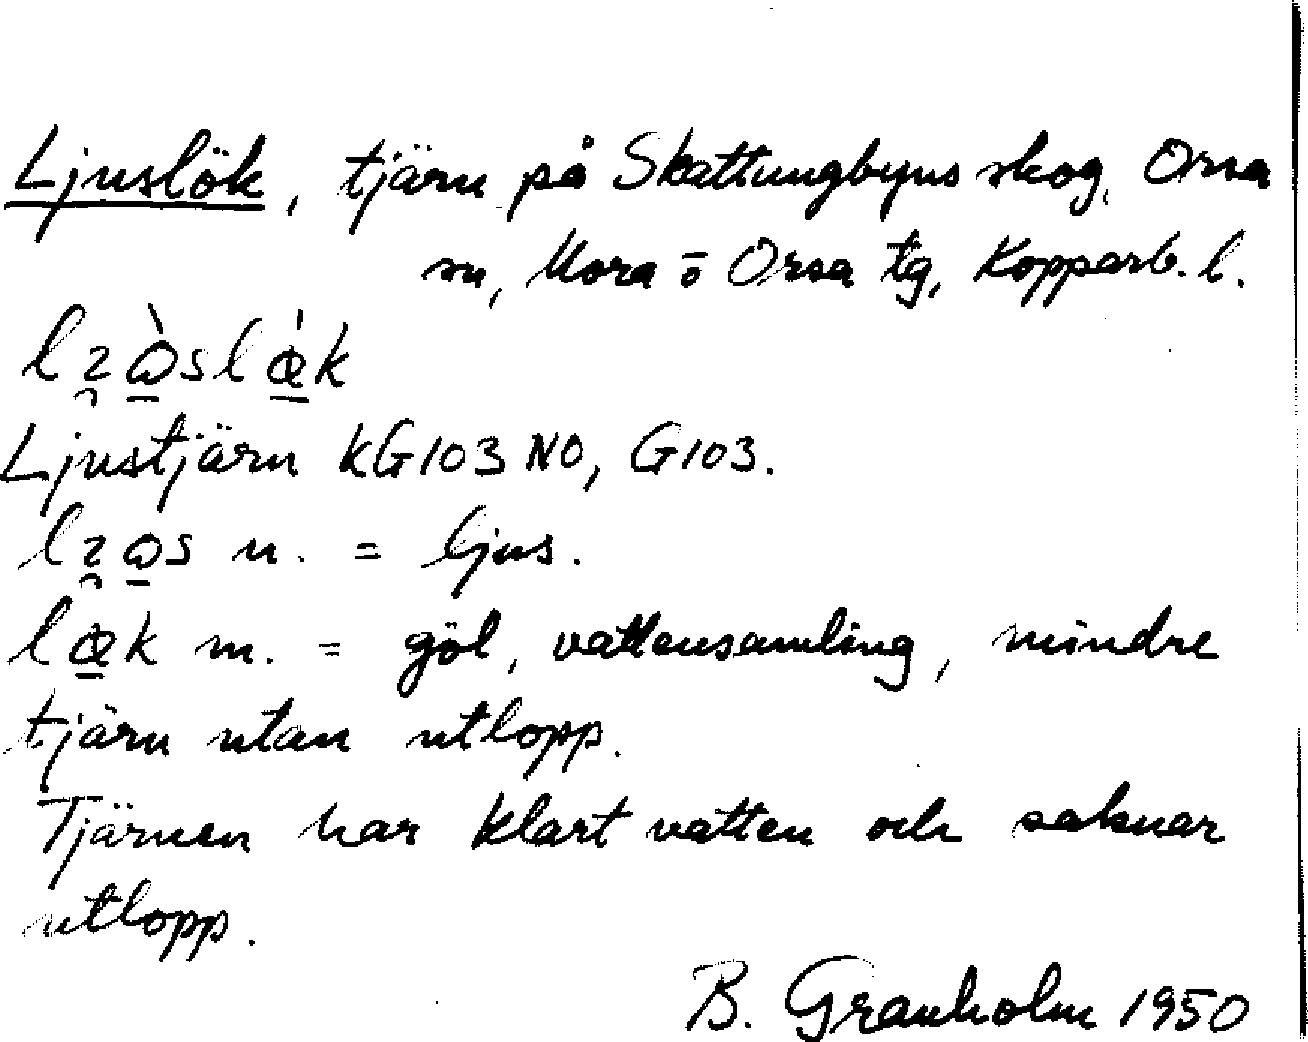 Ljuslök, tjärn på Skattungbyns skog, Orsa
sn, Mora o Orsa tg, Kopparb. l.
Ljustjärn kG103 NO, G103.
n. = ljus.
m. = göl, vattensamling, mindre
tjärn utan utlopp.
Tjärnen har klart vatten och saknar
utlopp.
B. Granholm 1950